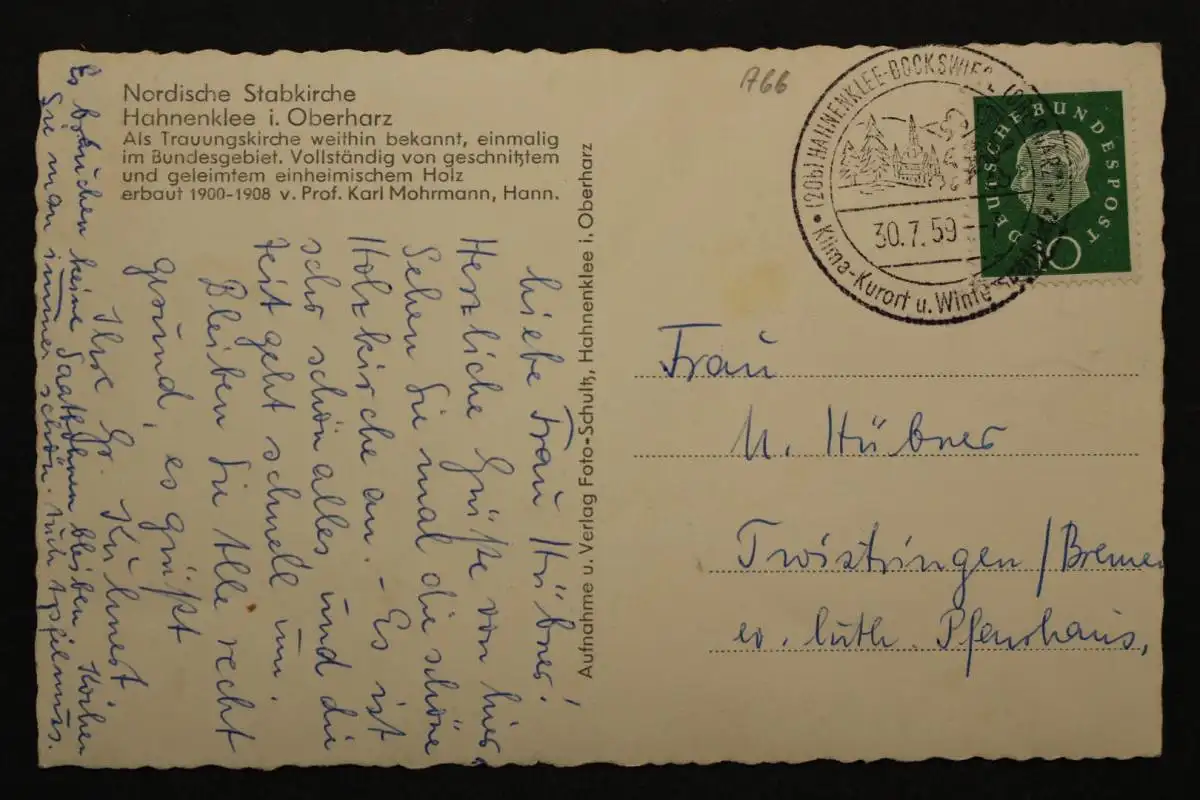 Nordische Stabkirche
Hahnenklee i. Oberharz
Als Trauungskirche weithin bekannt, einmalig
im Bundesgebiet. Vollständig von geschnitztem
und geleimtem einheimischem Holz
erbaut 1900-1908 v. Prof. Karl Mohrmann, Hann.
Aufnahme u. Verlag Foto-Schultz, Hahnenklee i. Oberharz
A66
(20b) HAHNENKLEE-BOCKSWIESE (OBERHARZ)
30.7.59
Klima-Kurort u. Winter
DEUTSCHE BUNDESPOST
10
Liebe Frau Hübner!
Herzliche Grüße von hier,
Sehen Sie mal die schöne
Holzkirche an. - Es ist
sehr schön alles und die
Zeit geht schnell um.
Bleiben Sie Alle recht
gesund, es grüßt
Ihre Gr. Kühnert
Es brauchen keine Saatbohnen bleiben. Kochen
Sie man immer schön. Auch Apfelmuss.
Frau
M. Hübner
Twistringen/Bremen
ev. luth. Pfarrhaus,